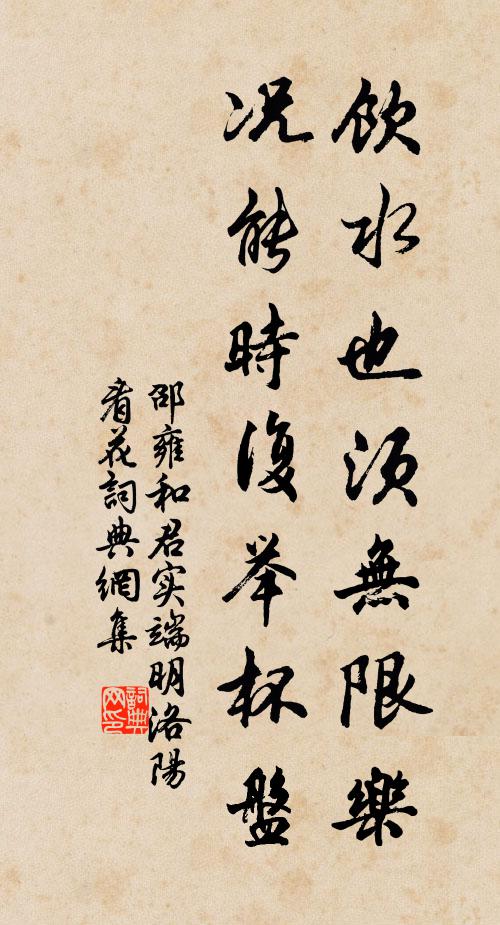 飲水也須無限樂
况能時復举杯盤
邵雍和君实端明洛陽
看花詞典網集
詞典
网印